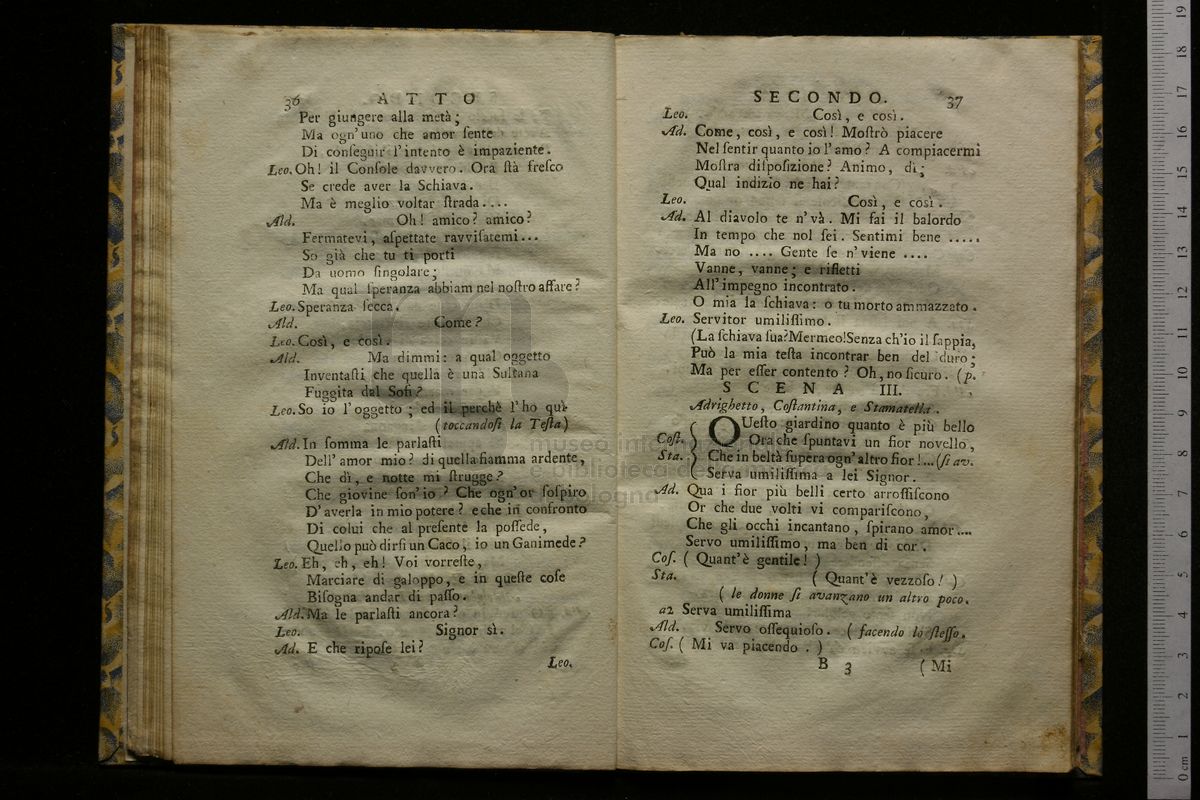 36 ATTO
Per giungere alla metà;
Ma ogn'uno che amor ſente
Di conſeguir l'intento è impaziente.
Leo. Oh! il Conſole davvero. Ora ſtà freſco
Se crede aver la Schiava.
Ma è meglio voltar ſtrada....
Ald. Oh! amico? amico?
Fermatevi, aſpettate ravviſatemi...
So già che tu ti porti
Da uomo ſingolare;
Ma qual ſperanza abbiam nel noſtro affare?
Leo. Speranza ſecca.
Ald. Come?
Leo. Così, e così.
Ald. Ma dimmi: a qual oggetto
Inventaſti che quella è una Sultana
Fuggita dal Sofì?
Leo. So io l'oggetto; ed il perchè l'ho quì
(toccandoſi la Teſta)
Ald. In ſomma le parlaſti
Dell'amor mio? di quella fiamma ardente,
Che dì, e notte mi ſtrugge?
Che giovine ſon'io? Che ogn'or ſoſpiro
D'averla in mio potere? e che in confronto
Di colui che al preſente la poſſede,
Quello può dirſi un Caco, io un Ganimede?
Leo. Eh, eh, eh! Voi vorreſte,
Marciare di galoppo, e in queſte coſe
Biſogna andar di paſſo.
Ald. Ma le parlaſti ancora?
Leo. Signor sì.
Ad. E che ripoſe lei?
Leo.
SECONDO. 37
Leo. Così, e così.
Ad. Come, così, e così! Moſtrò piacere
Nel ſentir quanto io l'amo? A compiacermi
Moſtra diſpoſizione? Animo, di;
Qual indizio ne hai?
Leo. Così, e così.
Ad. Al diavolo te n'và. Mi fai il balordo
In tempo che nol ſei. Sentimi bene .....
Ma no .... Gente ſe n'viene ....
Vanne, vanne; e rifletti
All'impegno incontrato.
O mia la ſchiava: o tu morto ammazzato.
Leo. Servitor umiliſſimo.
(La ſchiava ſua? Mermeo! Senza ch'io il ſappia,
Può la mia teſta incontrar ben del duro;
Ma per eſſer contento? Oh, no ſicuro. (p.
SCENA III.
Adrighetto, Coſtantina, e Stamatella.
Coſt. Sta. QUeſto giardino quanto è più bello
Ora che ſpuntavi un fior novello,
Che in beltà ſupera ogn'altro fior!... (ſi av.
Serva umiliſſima a lei Signor.
Ad. Qua i fior più belli certo arroſſiſcono
Or che due volti vi compariſcono,
Che gli occhi incantano, ſpirano amor....
Servo umiliſſimo, ma ben di cor.
Coſ. (Quant'è gentile!)
Sta. (Quant'è vezzoſo!)
(le donne ſi avanzano un altro poco.
a2 Serva umiliſſima
Ald. Servo oſſequioſo. (facendo lo ſteſſo.
Coſ. (Mi va piacendo.)
B 3 (Mi